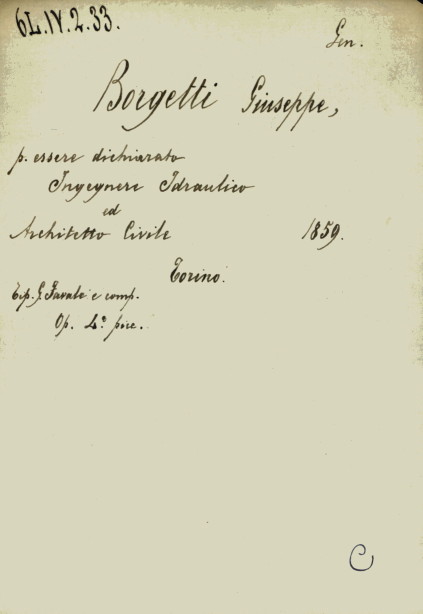 6L.IV.2.33.
Gen.
Borgetti Giuseppe,
p. essere dichiarato
Ingegnere Idraulico
ed
Architetto Civile 1859.
Torino.
Tip. G. Favale e comp.
Op. 4.° picc.
C